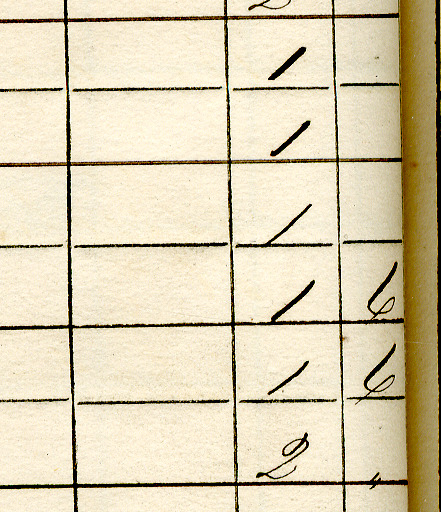 1
1
1
1 6
1 6
2 "